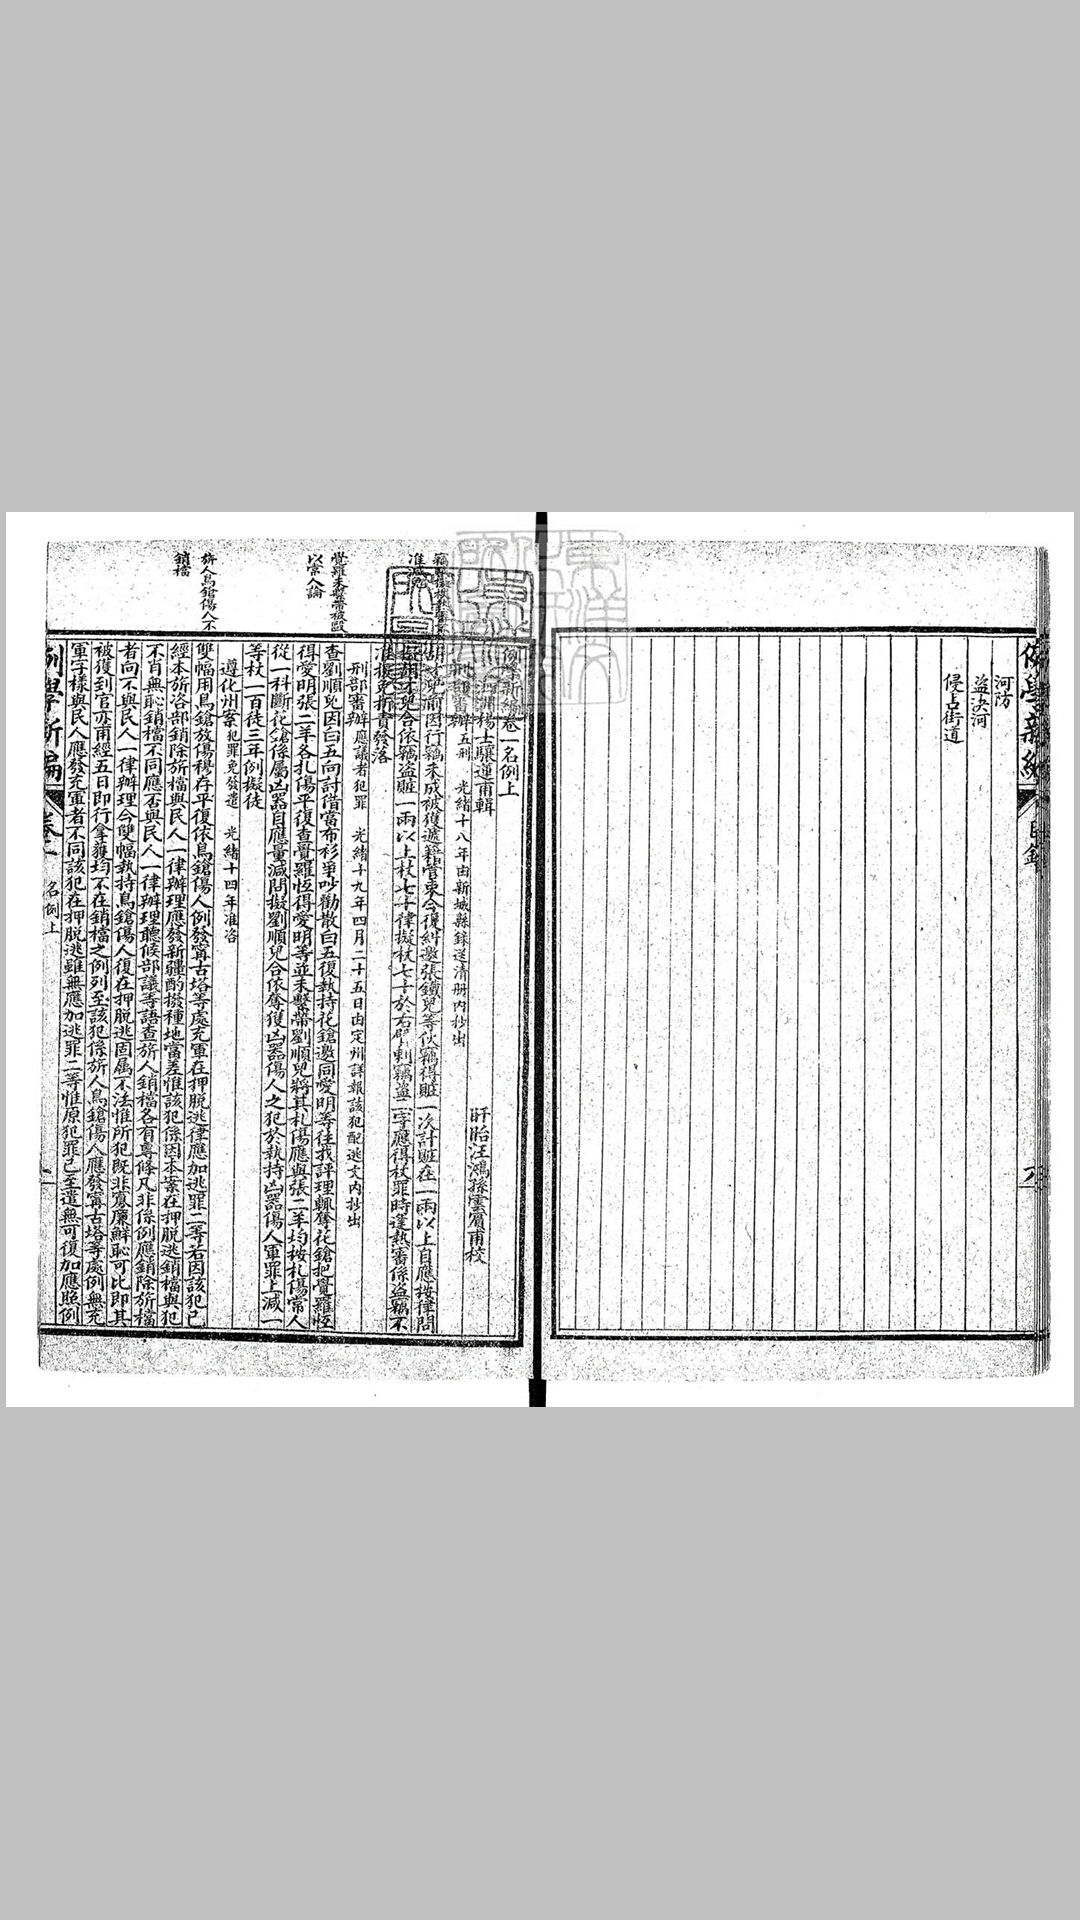 例學新編
目錄
河防
盜決河
侵占街道
例學新編卷一名例上
楊士驤蓮甫輯
盱眙汪鴻孫雲賓甫校
刑部審辦五刑 光緒十八年由新城縣錄送清冊內抄出
因行竊未成被獲遞籍管束今復糾邀張鐵兒等伙竊得贓一次計贓在一兩以上自應按律問
兒合依竊盜贓一兩以上杖七十律擬杖七十於右臂刺竊盜二字應得杖罪時逢熱審係盜竊不
准援免折責發落
刑部審辦應議者犯罪 光緒十九年四月二十五日由定州詳報該犯配逃文內抄出
覺羅未繫帶被毆
以常人論
查劉順兒因白五向討借當布衫爭吵勸散白五復執持花鎗邀同愛明等往找評理輒奪花鎗把覺羅恆
得愛明張二羊各扎傷平復查覺羅恆得愛明等並未繫帶劉順兒將其扎傷應與張二羊均按扎傷常人
從一科斷花鎗係屬凶器自應量減問擬劉順兒合依奪獲凶器傷人之犯於執持凶器傷人軍罪上減一
等杖一百徒三年例擬徒
遵化州案犯罪免發遣 光緒十四年准咨
旂人鳥鎗傷人不
銷檔
雙幅用鳥鎗放傷穆存平復依鳥鎗傷人例發甯古塔等處充軍在押脫逃律應加逃罪二等若因該犯已
經本旂咨部銷除旂檔與民人一律辦理應發新疆酌撥種地當差惟該犯係因本案在押脫逃銷檔與犯
不肖無恥銷檔不同應否與民人一律辦理聽候部議等語查旂人銷檔各有專條凡非係例應銷除旂檔
者向不與民人一律辦理今雙幅執持鳥鎗傷人復在押脫逃固屬不法惟所犯既非寡廉鮮恥可比即其
被獲到官亦甫經五日即行拿獲均不在銷檔之例列至該犯係旂人鳥鎗傷人應發甯古塔等處例無充
軍字樣與民人應發充軍者不同該犯在押脫逃雖無應加逃罪二等惟原犯罪已至遣無可復加應照例
例學新編
卷一
名例上
一